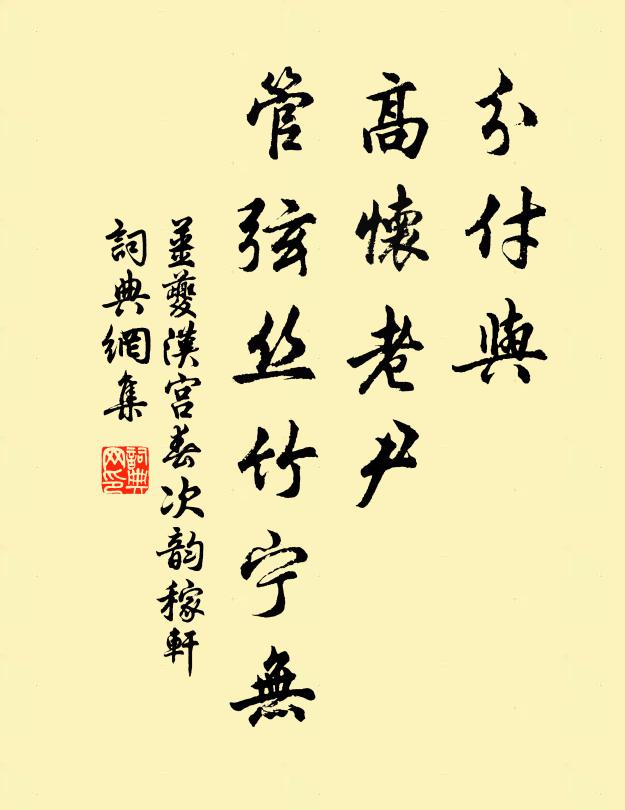 分付與
高懷老尹
管弦丝竹宁無
姜夔漢宮春次韵稼軒
詞典網集
詞典網印